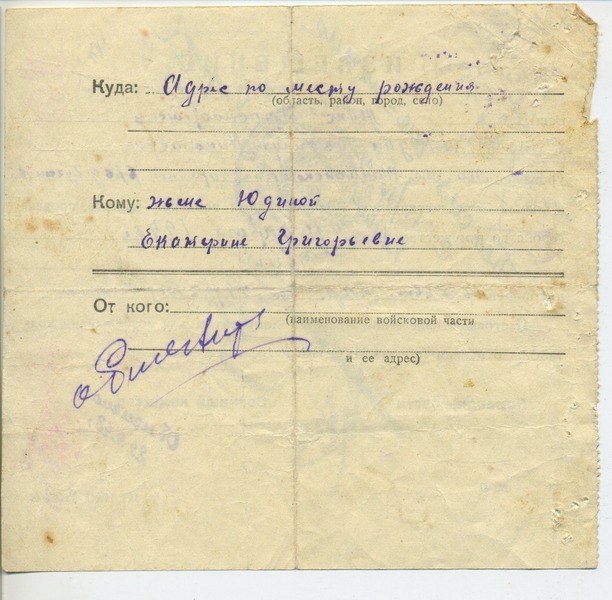 Куда: Адрес по месту рождения
(область, район, город, село)
Кому: жене Юдиной
Екатерине Григорьевне
От кого:
(наименование войсковой части
и ее адрес)